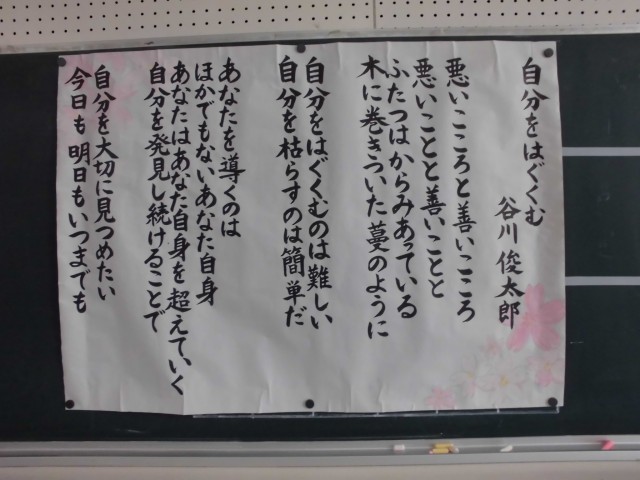 自分をはぐくむ
谷川俊太郎
悪いこころと善いこころ
悪いことと善いことと
ふたつはからみあっている
木に巻きついた蔓のように
自分をはぐくむのは難しい
自分を枯らすのは簡単だ
あなたを導くのは
ほかでもないあなた自身
あなたはあなた自身を超えていく
自分を発見し続けることで
自分を大切に見つめたい
今日も明日もいつまでも